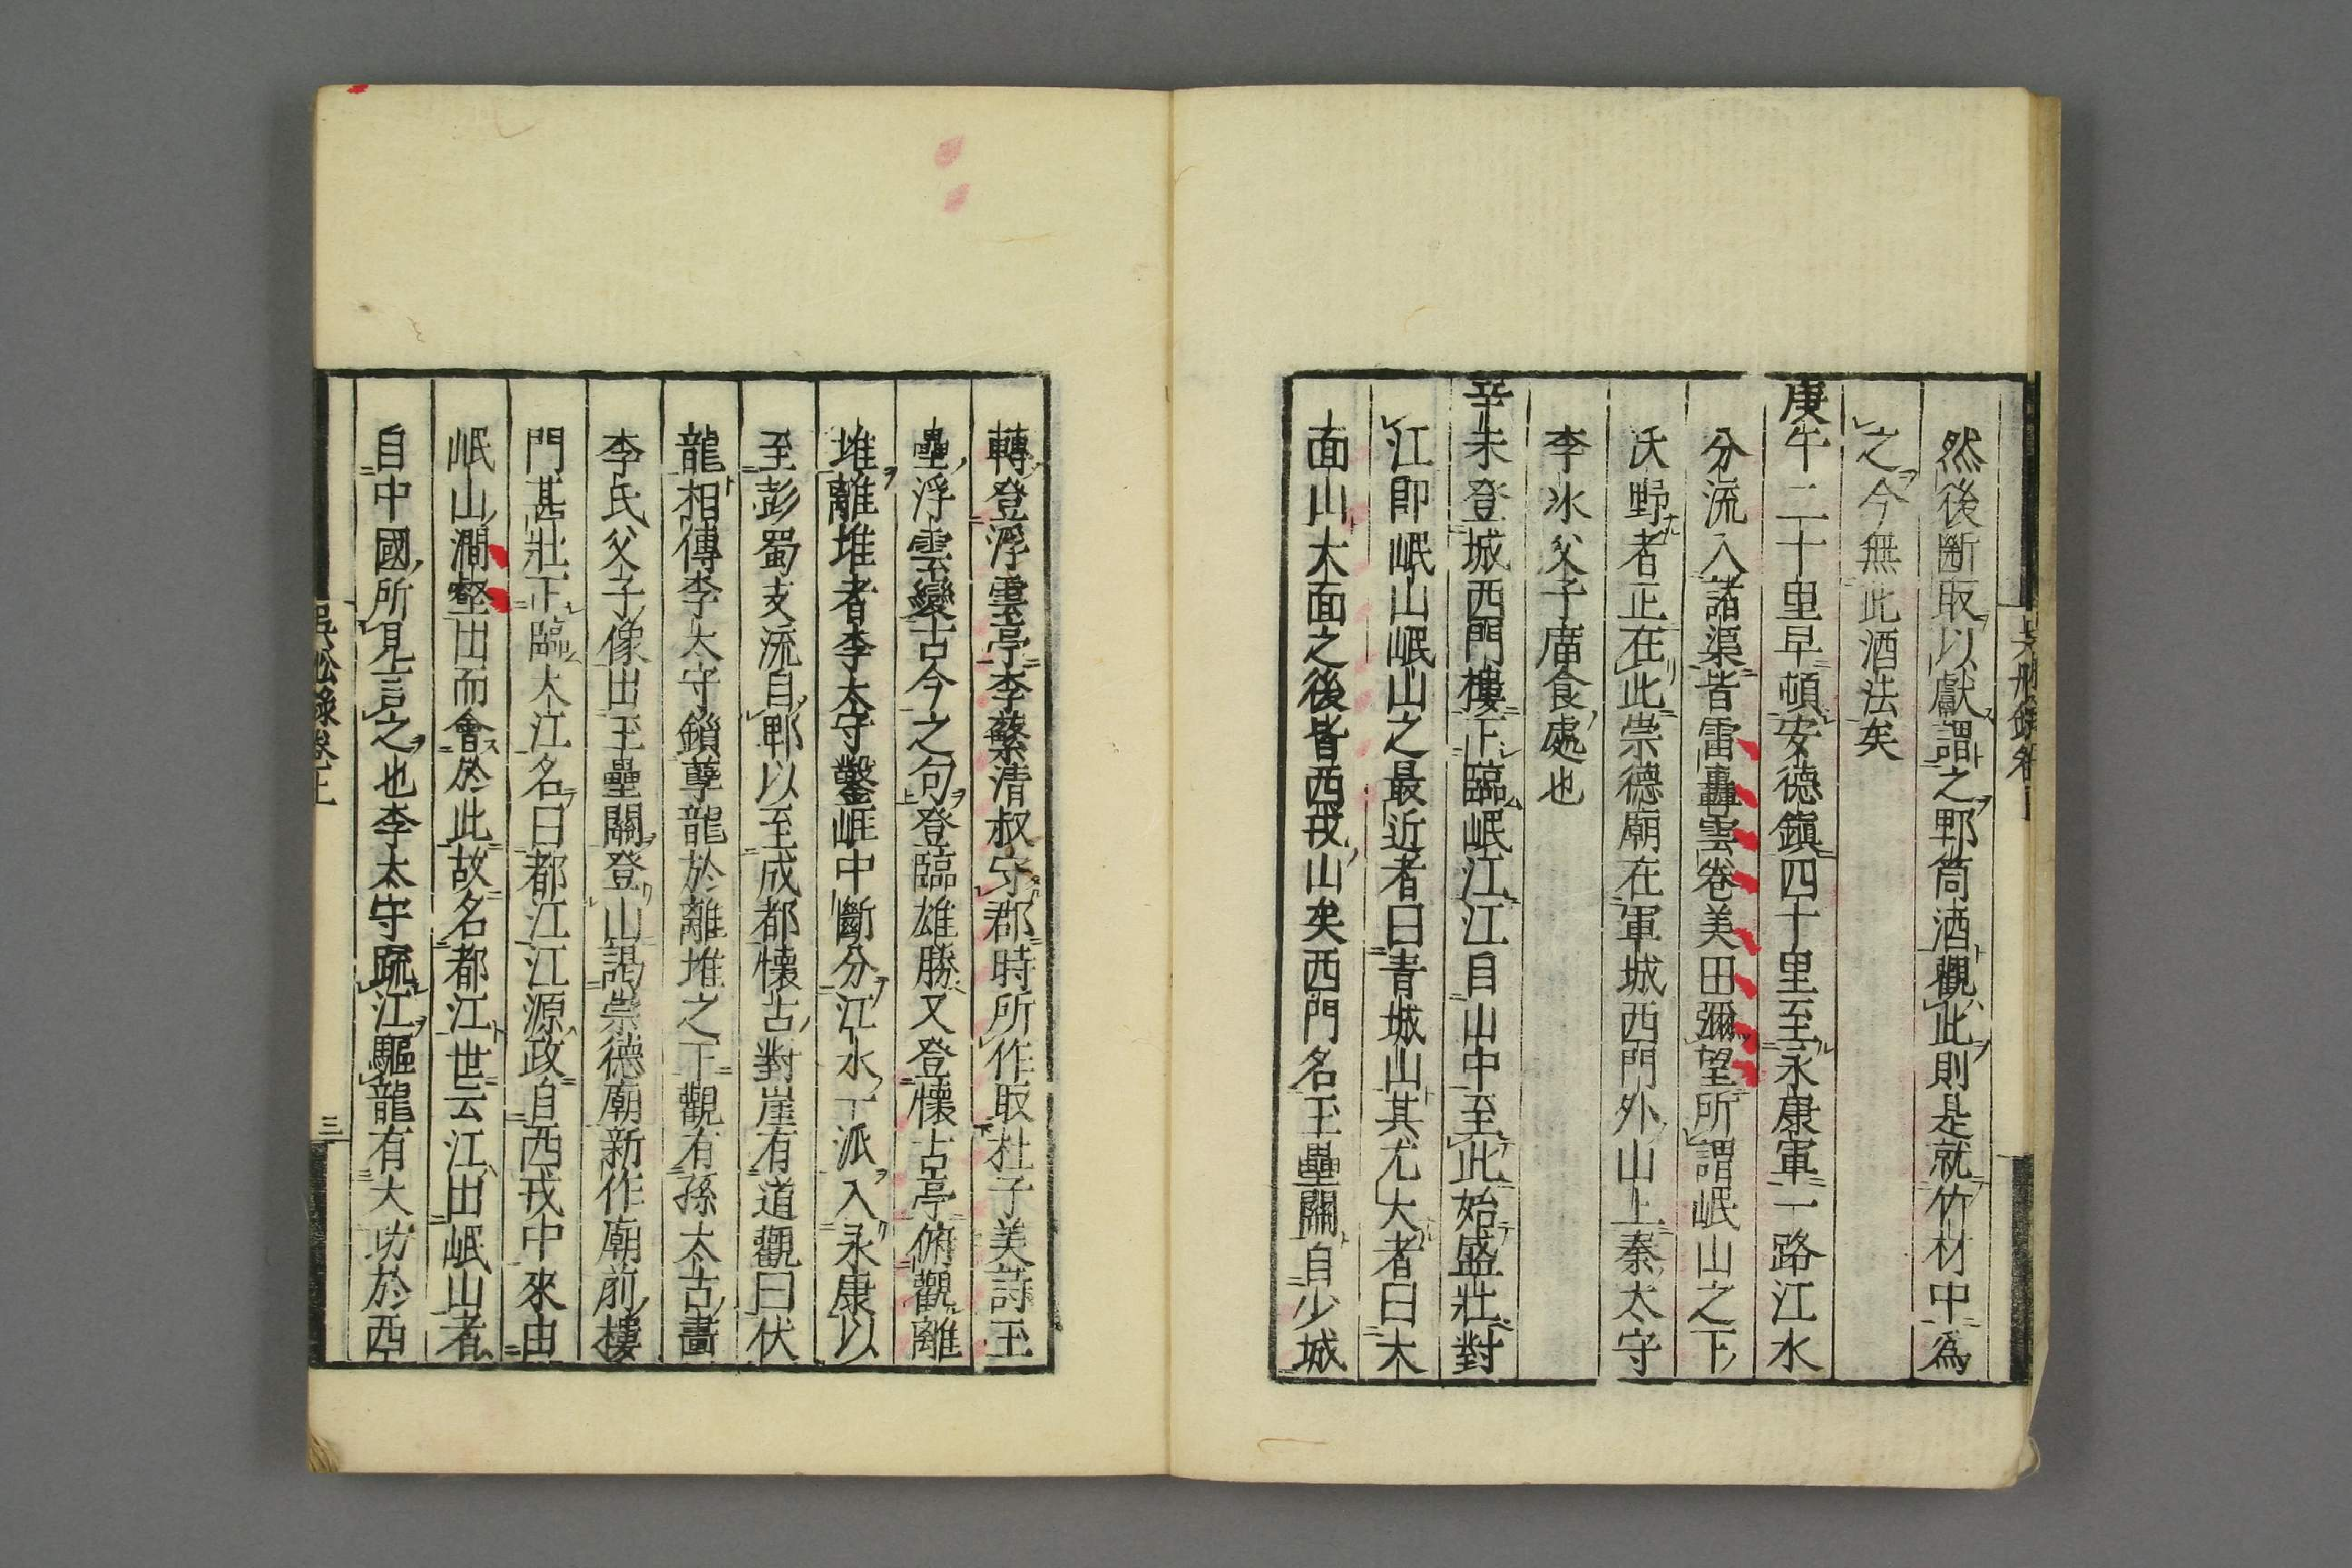 然後斷取以獻謂之郫筒酒觀此則是就竹材中爲
之今無此酒法矣
庚午二十里早頓安德鎭四十里至永康軍一路江水
分流入諸渠皆雷轟雲卷美田彌望所謂岷山之下
沃野者正在此崇德廟在軍城西門外山上秦太守
李氷父子廟食處也
辛未登城西門樓正臨岷江江自山中至此始盛壯對
江即岷山岷山之最近者曰青城山其尤大者曰大
面山大面之後皆西戎山矣西門名玉壘關自少城
轉登浮雲亭李蘩清叔守郡時所作取杜子美詩玉
壘浮雲變古今之句登臨雄勝又登懷古亭俯觀離
堆離堆者李太守鑿崕中斷分江水一派入永康以
至彭蜀支流自郫以至成都懷古對崖有道觀曰伏
龍相傳李太守鎖孽龍於離堆之下觀有孫太古畫
李氏父子像出玉壘關登山謁崇德廟新作廟前樓
門甚壯正臨大江名曰都江江源政自西戎中來由
岷山澗壑出而會於此故名都江世云江出岷山者
自中國所見言之也李太守疏江驅龍有大功於西
吳舩錄卷上
三